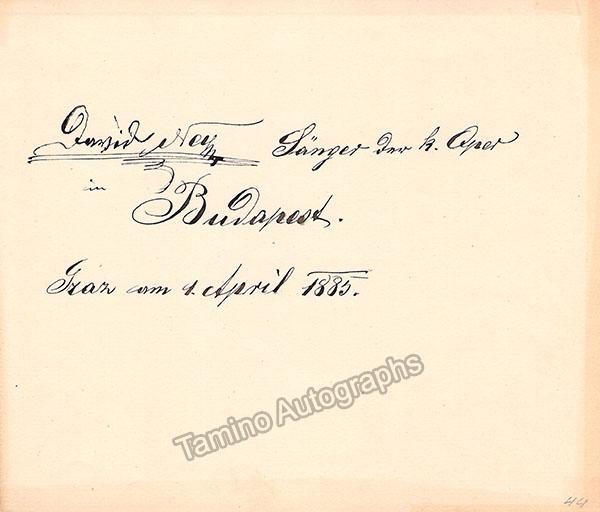 David Ney Sänger der k. Oper
in
Budapest.
Graz am 1. April 1885.
Tamino Autographs
44